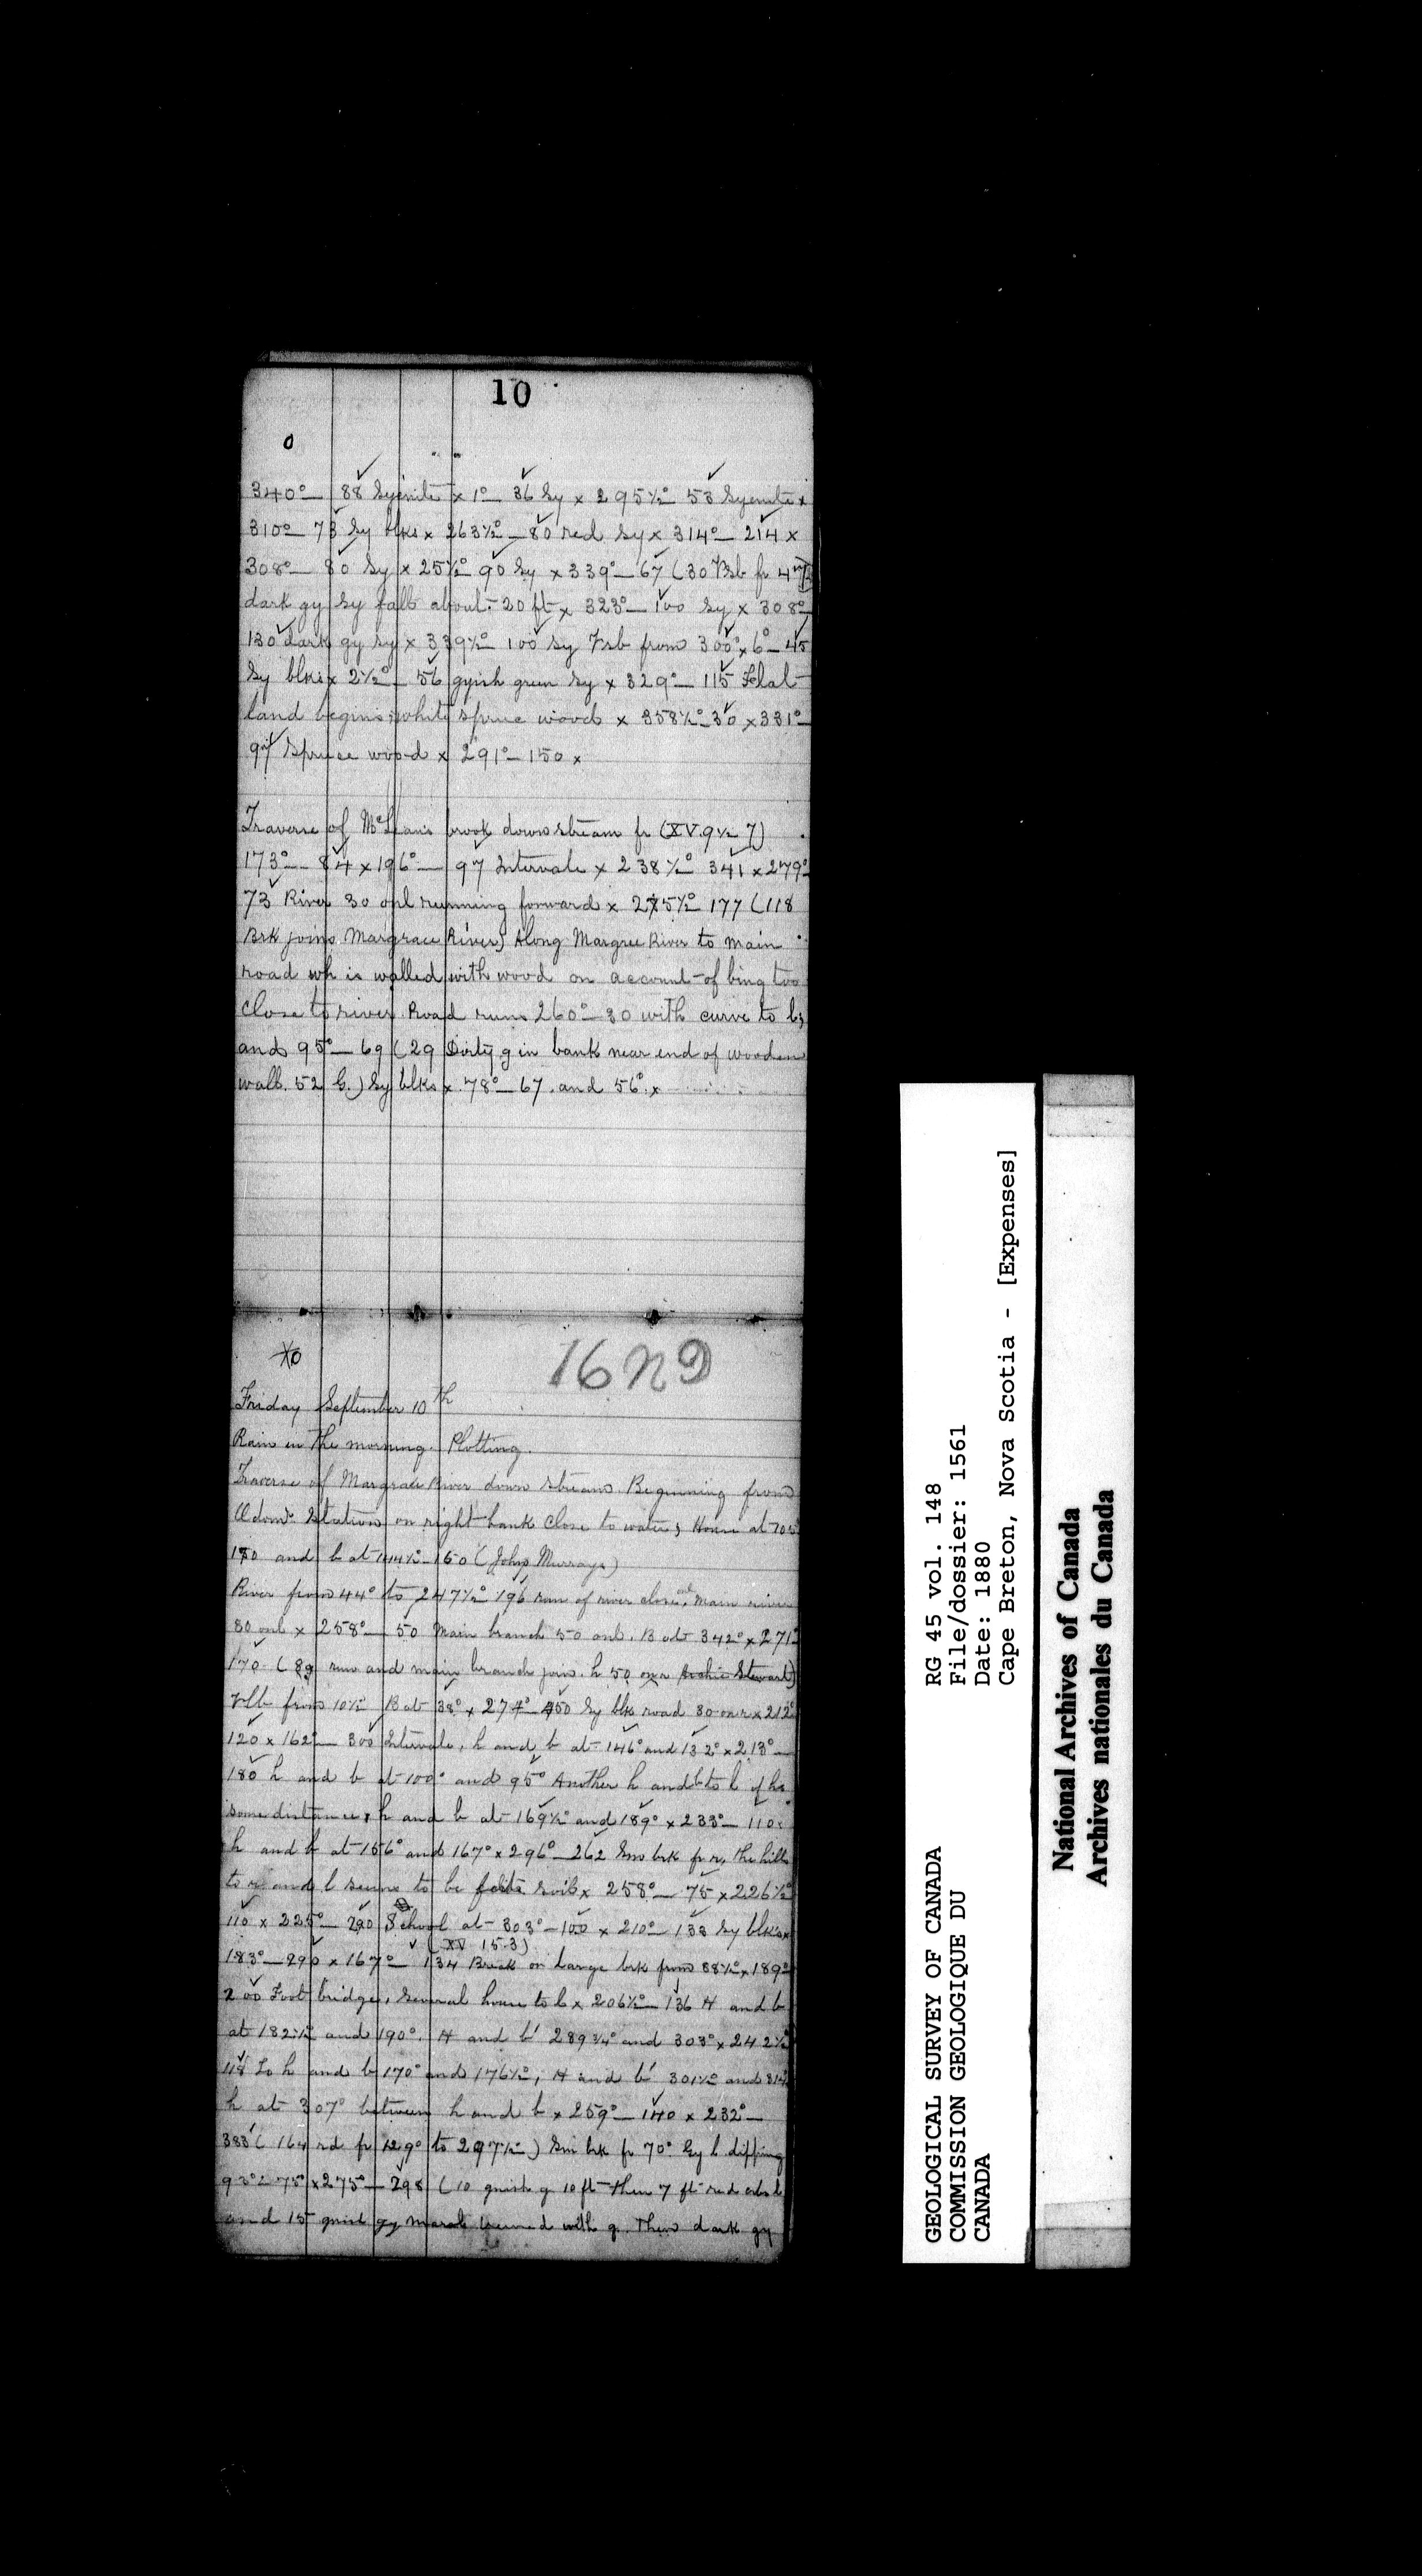 10
0
340°— 88 Syenite x 1°— 36 Sy x 295½° 53 Syenite x
310°— 73 Sy blks x 263½°— 80 red Sy x 314°— 214 x
308°— 80 Sy x 25½° 90 Sy x 339°— 67 (30 Bsb fr 4
dark gy Sy falls about 20 ft x 323°— 100 Sy x 308°
130 dark gy sy x 339½° 100 Sy Vsb from 300° x 6°— 45
Sy blks x 2½°— 56 gyish green Sy x 329°— 115 Flat
land begins; white spruce woods x 358½° 30 x 331°
97 Spruce wood x 291°— 150 x
Traverse of McLean's brook down stream fr (XV. 9½ 7)
173°— 84 x 196°— 97 Intervale x 238½° 341 x 279°
73 River 30 onl running forward x 275½° 177 (118
Brk joins Margrace River) Along Margree River to main
road wh is walled with wood on account of bing too
close to river. Road runs 260°— 30 with curve to l,
and 95°— 69 (29 Dirty g in bank near end of wooden
wall. 52 G.) Sy blks x 78°— 67 and 56° x
16ND
Friday September 10th
Rain in the morning. Plotting.
Traverse of Margrace River down stream. Beginning from
Odom. Station on right bank close to water; House at 70
150 and b at 144½— 160 (John Murrays)
River from 44° to 247½° 196 run of river alone, main river
80 onl x 258°— 50 Main branch 50 onl. B at 342° x 271°
170 (89 run and main branch join. h 50 onr Archie Stewart)
Vlb from 10½ B at 38° x 274°— 450 Sy blk road 30 onr x 212°
120 x 162°— 300 Intervale, h and b at 146° and 132° x 213°—
180 h and b at 100° and 95° Another h and b to l of ha
some distance, h and b at 169½ and 189° x 233°— 110
h and b at 156° and 167° x 296°— 262 Sm brk fr r, the hills
to r and l seems to be felsite soil x 258°— 75 x 226½°
110 x 225°— 290 School at 303°— 100 x 210°— 133 Sy blks x
(XV 15.3)
183°— 290 x 167°— 134 Break on Large brk from 88½° x 189°
200 Foot bridge, Several house to l x 206½°— 136 H and b
at 182½ and 190°. H and b' 289¾° and 303° x 242½°
118 Lo h and b 170° and 176½°, H and b' 301½° and 314°
h at 307° between h and b x 259°— 140 x 232°—
383 (164 rd fr 129° to 297½°) Sm brk fr 70° Gy l dipping
93°— 75° x 275°— 298 (10 gnish g 10 ft then 7 ft red
and 15 gnish gy marls seamed with g. Then dark gy
GEOLOGICAL SURVEY OF CANADA
COMMISSION GEOLOGIQUE DU
CANADA
RG 45 vol. 148
File/dossier: 1561
Date: 1880
Cape Breton, Nova Scotia - [Expenses]
National Archives of Canada
Archives nationales du Canada